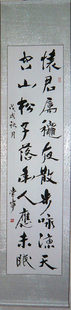 懷君屬穐夜散步咏涼天
空山松子落幽人應未眠
戊戌秋月